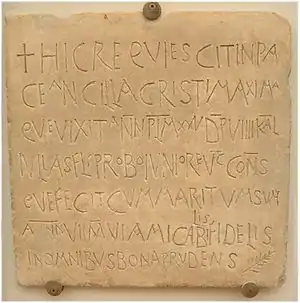 ✝ HIC REQVIESCIT IN PA
CE ANCILLA CRISTI MAXIMA
QVE VIXIT ANN PLM XXV DP VIIII KAL
IVLAS FL PROBO IVNIORE VC CONS
QVE FECIT CVM MARITVM SVM
ANN VII M VI AMICABILIS FIDELIS
IN OMNIBVS BONA PRVDENS